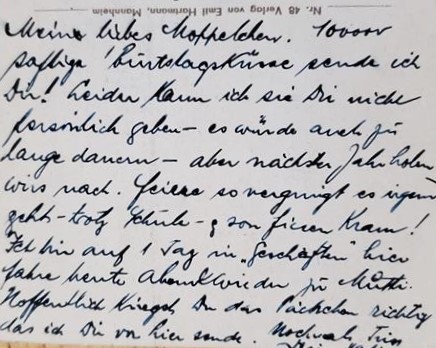 Nr. 48 Verlag von Emil Hartmann, Mannheim
Meine liebes Moppelchen. 100000
saftige Burtstagsküsse sende ich
Dir! Leider kann ich sie Dir nicht
persönlich geben – es würde auch zu
lange dauern – aber nächstes Jahr holen
wirs nach. Feiere so vergnügt es irgend
geht – trotz Schule – & son fiesen Kram!
Ich bin auf 1 Tag in „Geschäften" hier
fahre heute Abend wieder zu Mutti.
Hoffentlich kriegst Du das Päckchen richtig
das ich Dir von hier sende. Nochmals